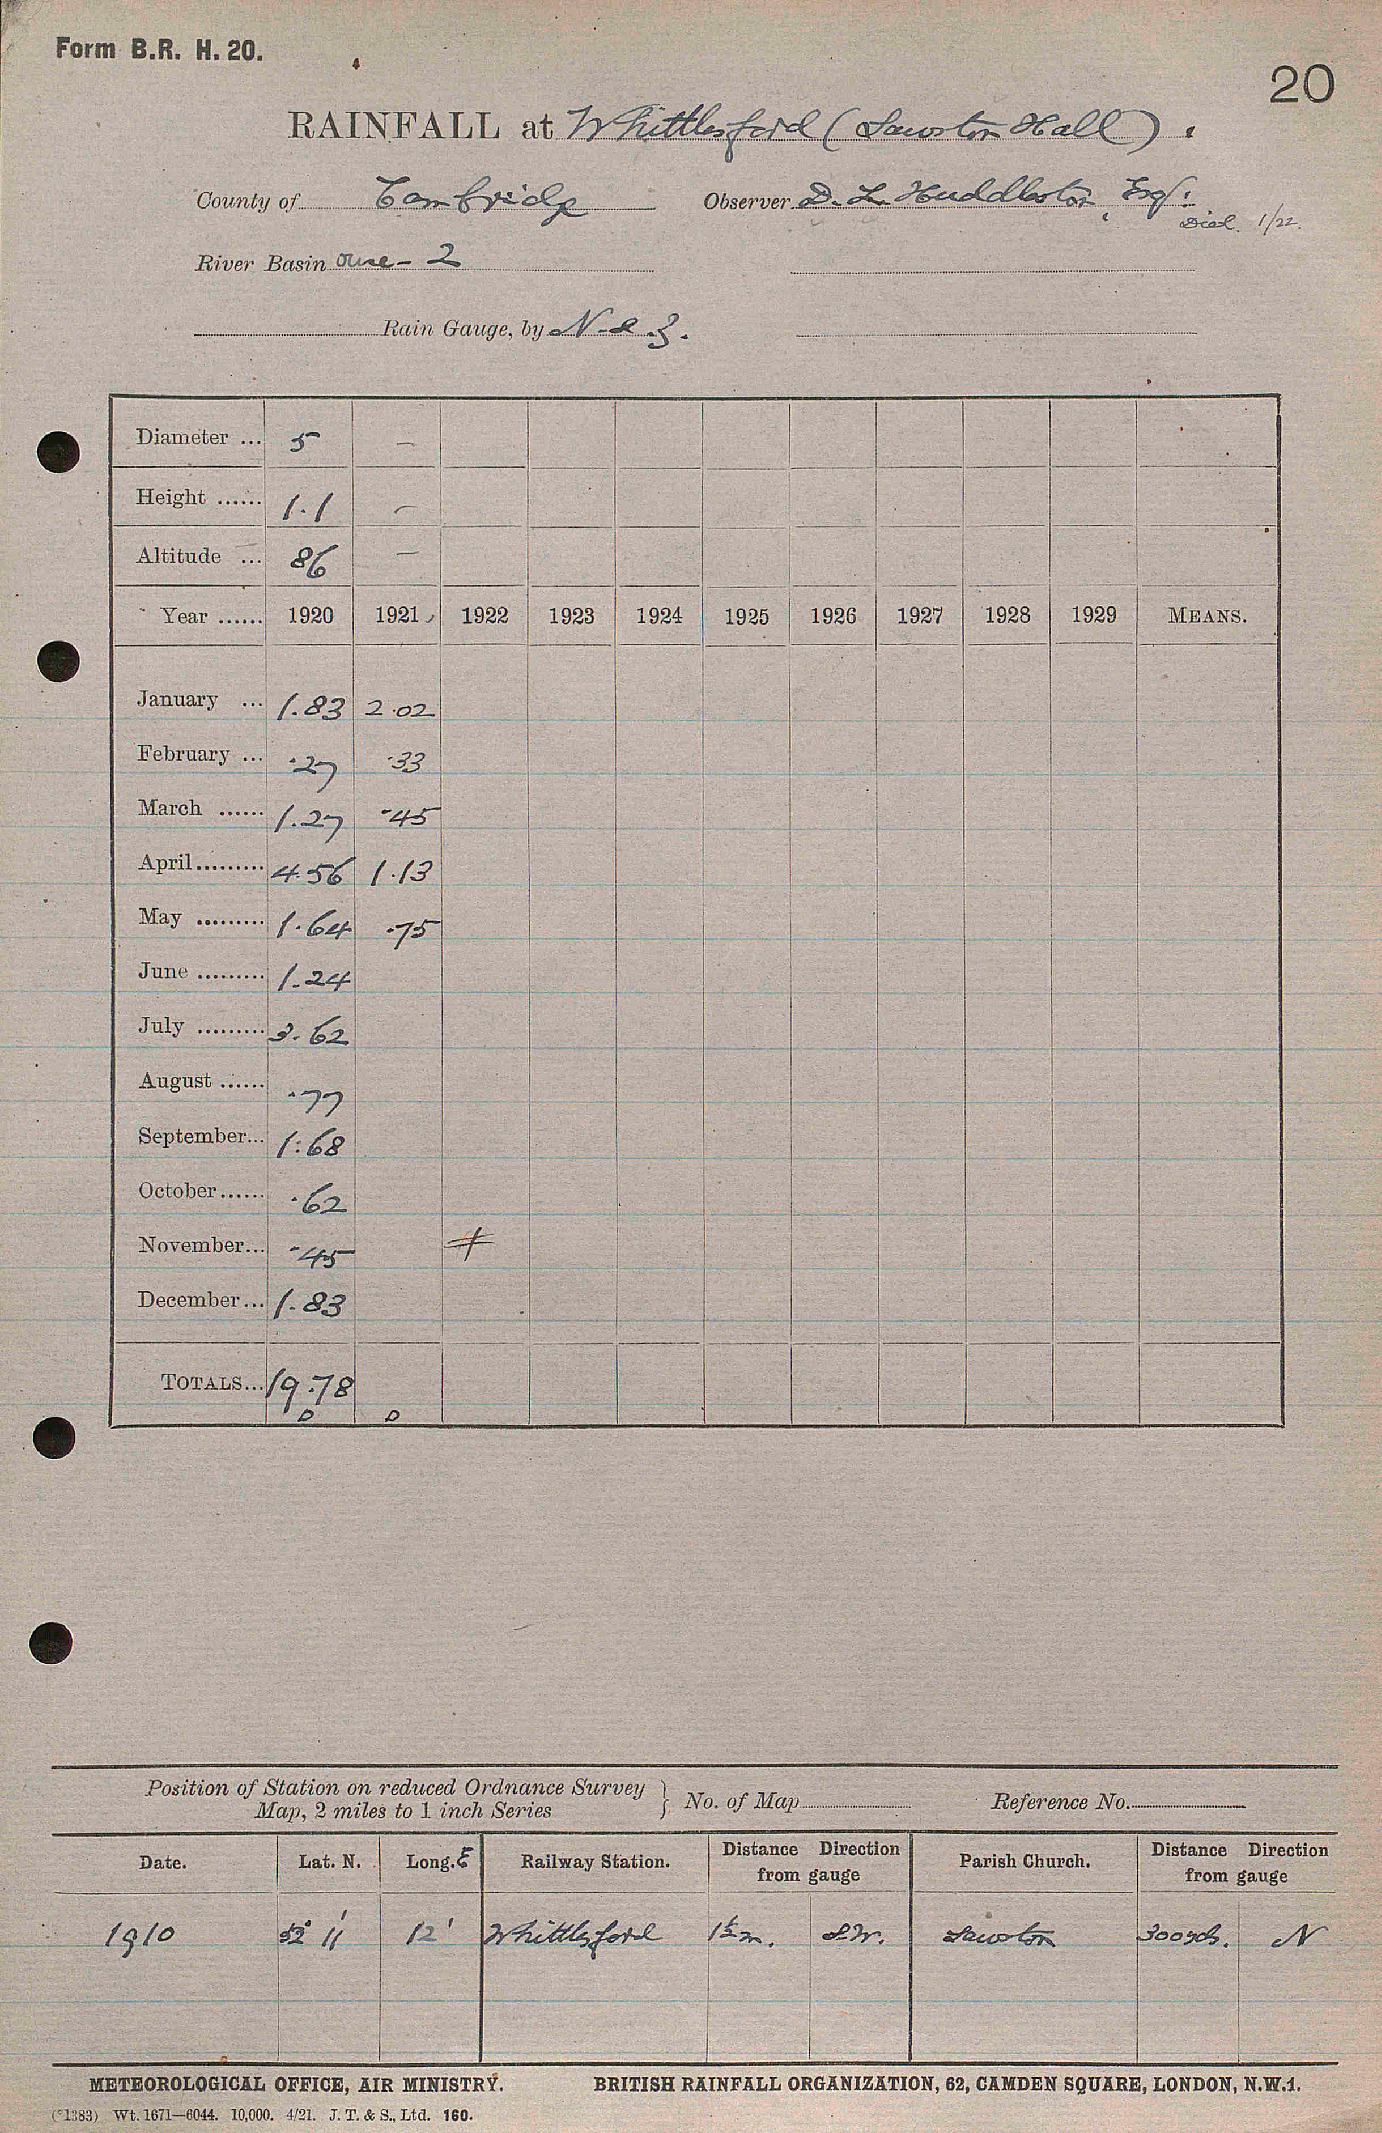 Form B.R. H. 20.
20
RAINFALL at Whittlesford (Sawston Hall).
County of Cambridge Observer D. L. Huddleston, Esq.
Died. 1/22.
River Basin Ouse - 2
Rain Gauge, by N & Z.
Diameter ... 5 —
Height ...... 1.1 —
Altitude ... 86 —
Year ...... 1920 1921 1922 1923 1924 1925 1926 1927 1928 1929 MEANS.
January ... 1.83 2.02
February ... .27 .33
March ...... 1.27 .45
April ......... 4.56 1.13
May ......... 1.64 .75
June ......... 1.24
July ......... 3.62
August ...... .77
September... 1.68
October ...... .62
November... .45
December... 1.83
TOTALS... 19.78
Position of Station on reduced Ordnance Survey
Map, 2 miles to 1 inch Series } No. of Map Reference No.
Date. Lat. N. Long. E Railway Station. Distance Direction from gauge Parish Church. Distance Direction from gauge
1910 52° 11' 12' Whittlesford 1½ m. S.W. Sawston 300 yds. N
METEOROLOGICAL OFFICE, AIR MINISTRY. BRITISH RAINFALL ORGANIZATION, 62, CAMDEN SQUARE, LONDON, N.W.1.
(*1383) Wt. 1671—6044. 10,000. 4/21. J. T. & S., Ltd. 160.